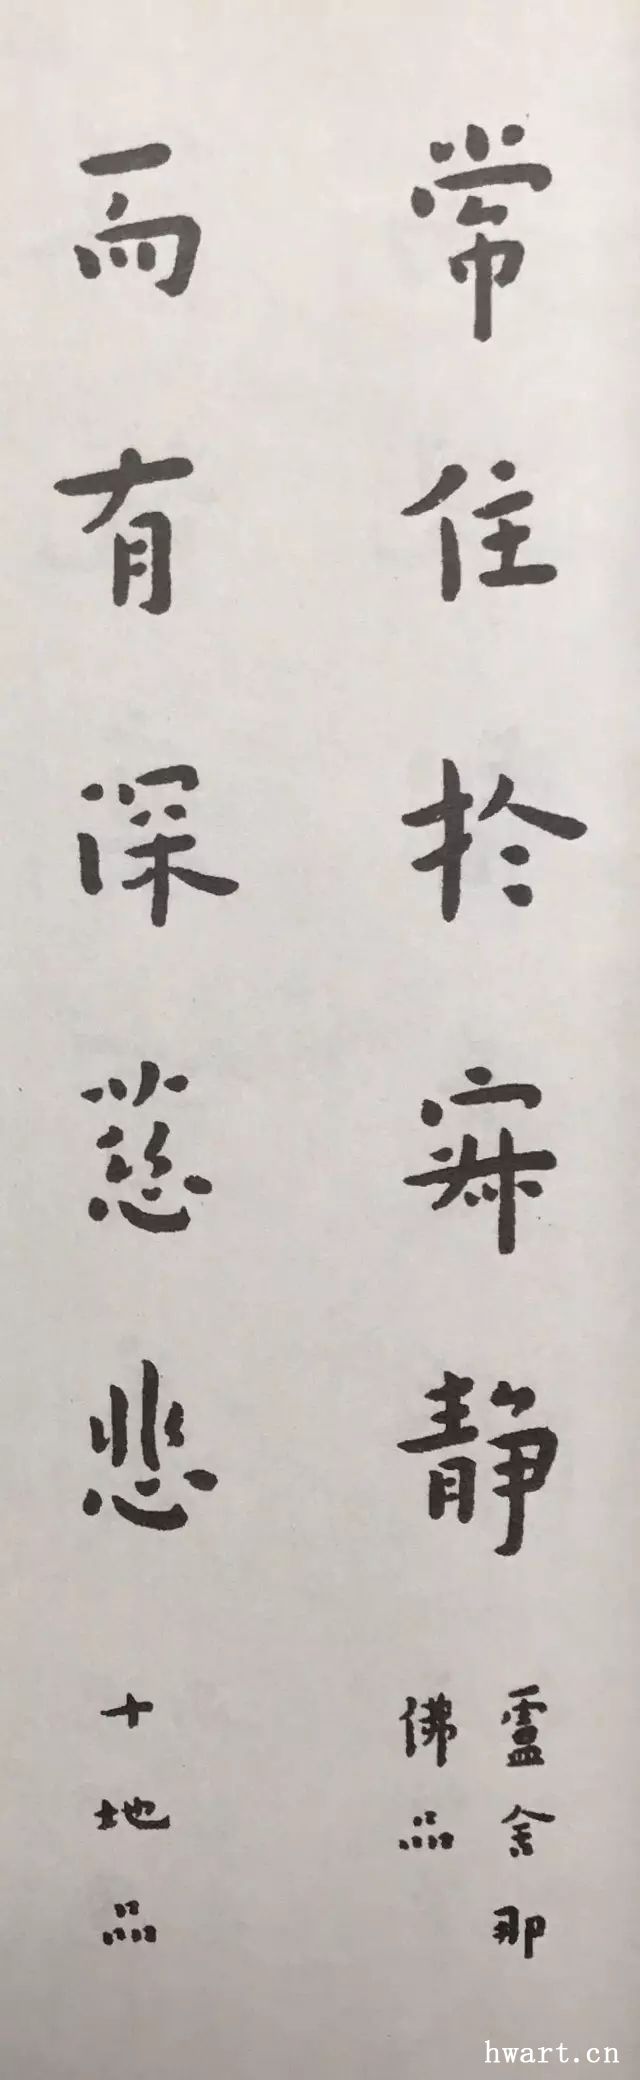 常住於寂静
盧舍那
佛品
而有深慈悲
十地品
hwart.cn